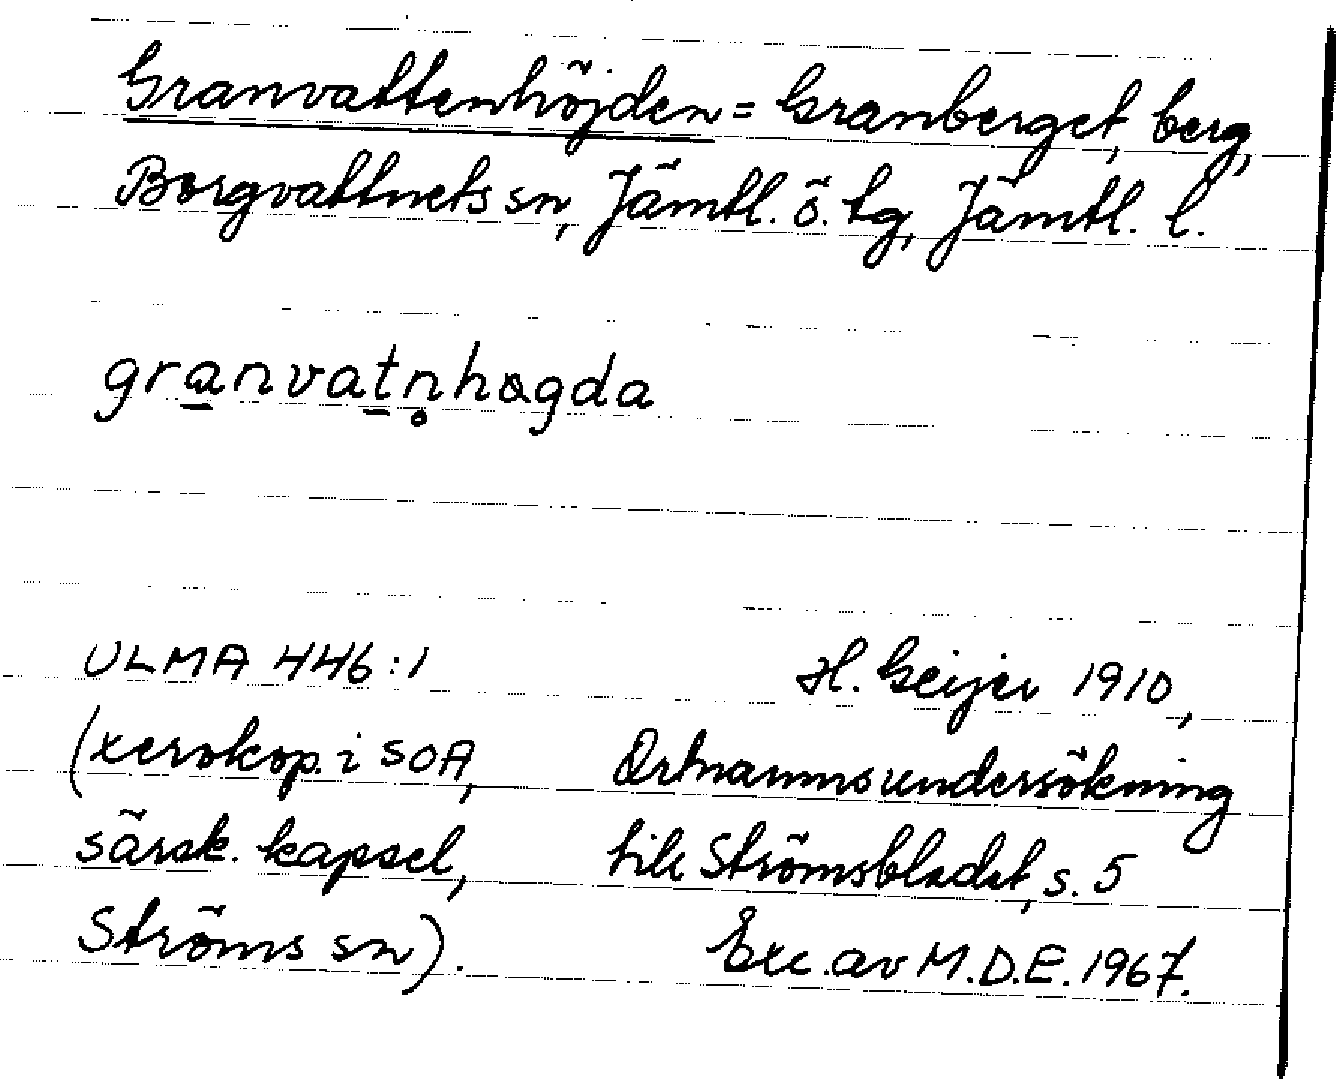 Granvattenhöjden = Granberget, berg,
Borgvattnets sn, Jämtl. ö. tg, Jämtl. l.
gra̠nvat̠n̥høgda
ULMA 446:1
H. Geijer 1910,
(xerokop. i SOA,
Ortnamnsundersökning
särsk. kapsel,
till Strömsbladet, s. 5
Ströms sn).
Exc. av M.D.E. 1967.